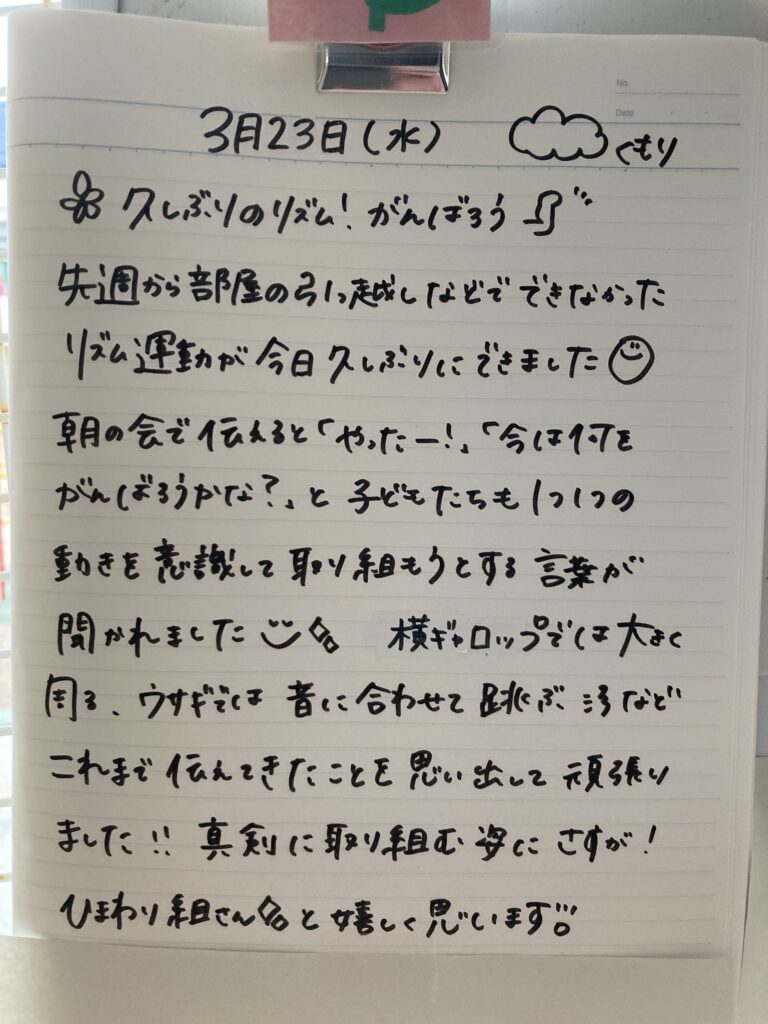 No.
Date
3月23日(水) くもり
久しぶりのリズム!がんばろう
先週から部屋の引っ越しなどでできなかった
リズム運動が今日久しぶりにできました
朝の会で伝えると「やったー!」「今は何を
がんばろうかな?」と子どもたちも1つ1つの
動きを意識して取り組もうとする言葉が
聞かれました 横ギャロップでは大きく
周る、ウサギでは音に合わせて跳ぶ など
これまで伝えてきたことを思い出して頑張り
ました!!真剣に取り組む姿にさすが!
ひまわり組さんと嬉しく思います